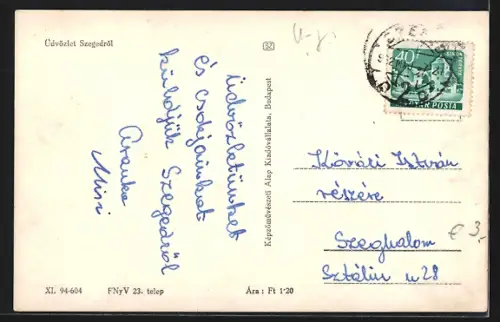 Üdvözlet Szegedről
Üdvözletünket
és csókjainkat
küldjük Szegedről
Aranka
Misi
XI. 94-604 FNyV 23. telep Ára: Ft 1·20
Képzőművészeti Alap Kiadóvállalata, Budapest
40f
MAGYAR POSTA
Kővári István
részére
Szeghalom
Sztálin u 28
€ 3,-